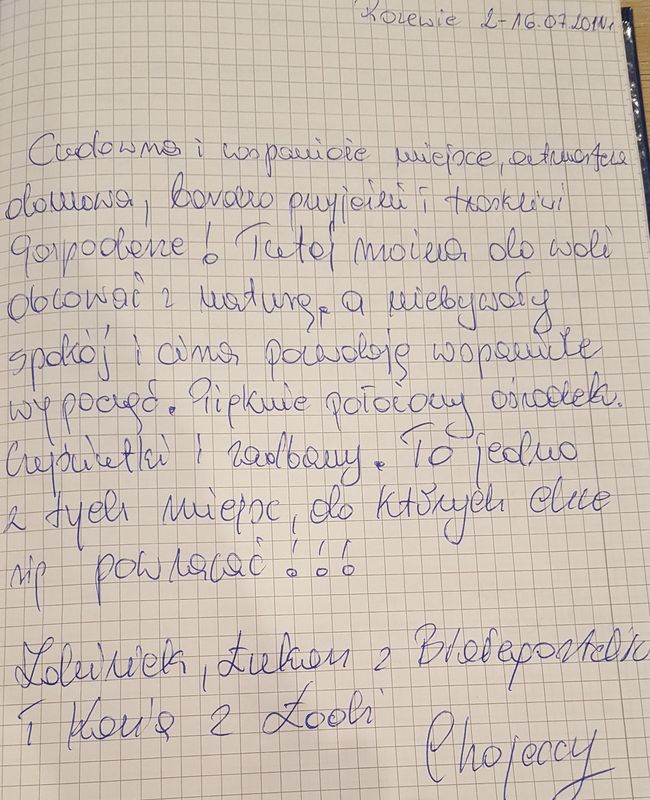 2-16.07.201
Cudowne i wspaniałe miejsce,
domowa, bardzo przyjaźni i troskliwi
gospodarze! Tutaj można do woli
obcować z naturą, a niebywały
spokój i cisza pozwolają wspaniale
wypocząć. Pięknie położony ośrodek.
Czyściutki i zadbany. To jedno
z tych miejsc, do których chce
się powracać!!!
z
i Kasia z Łodzi
Chojeccy